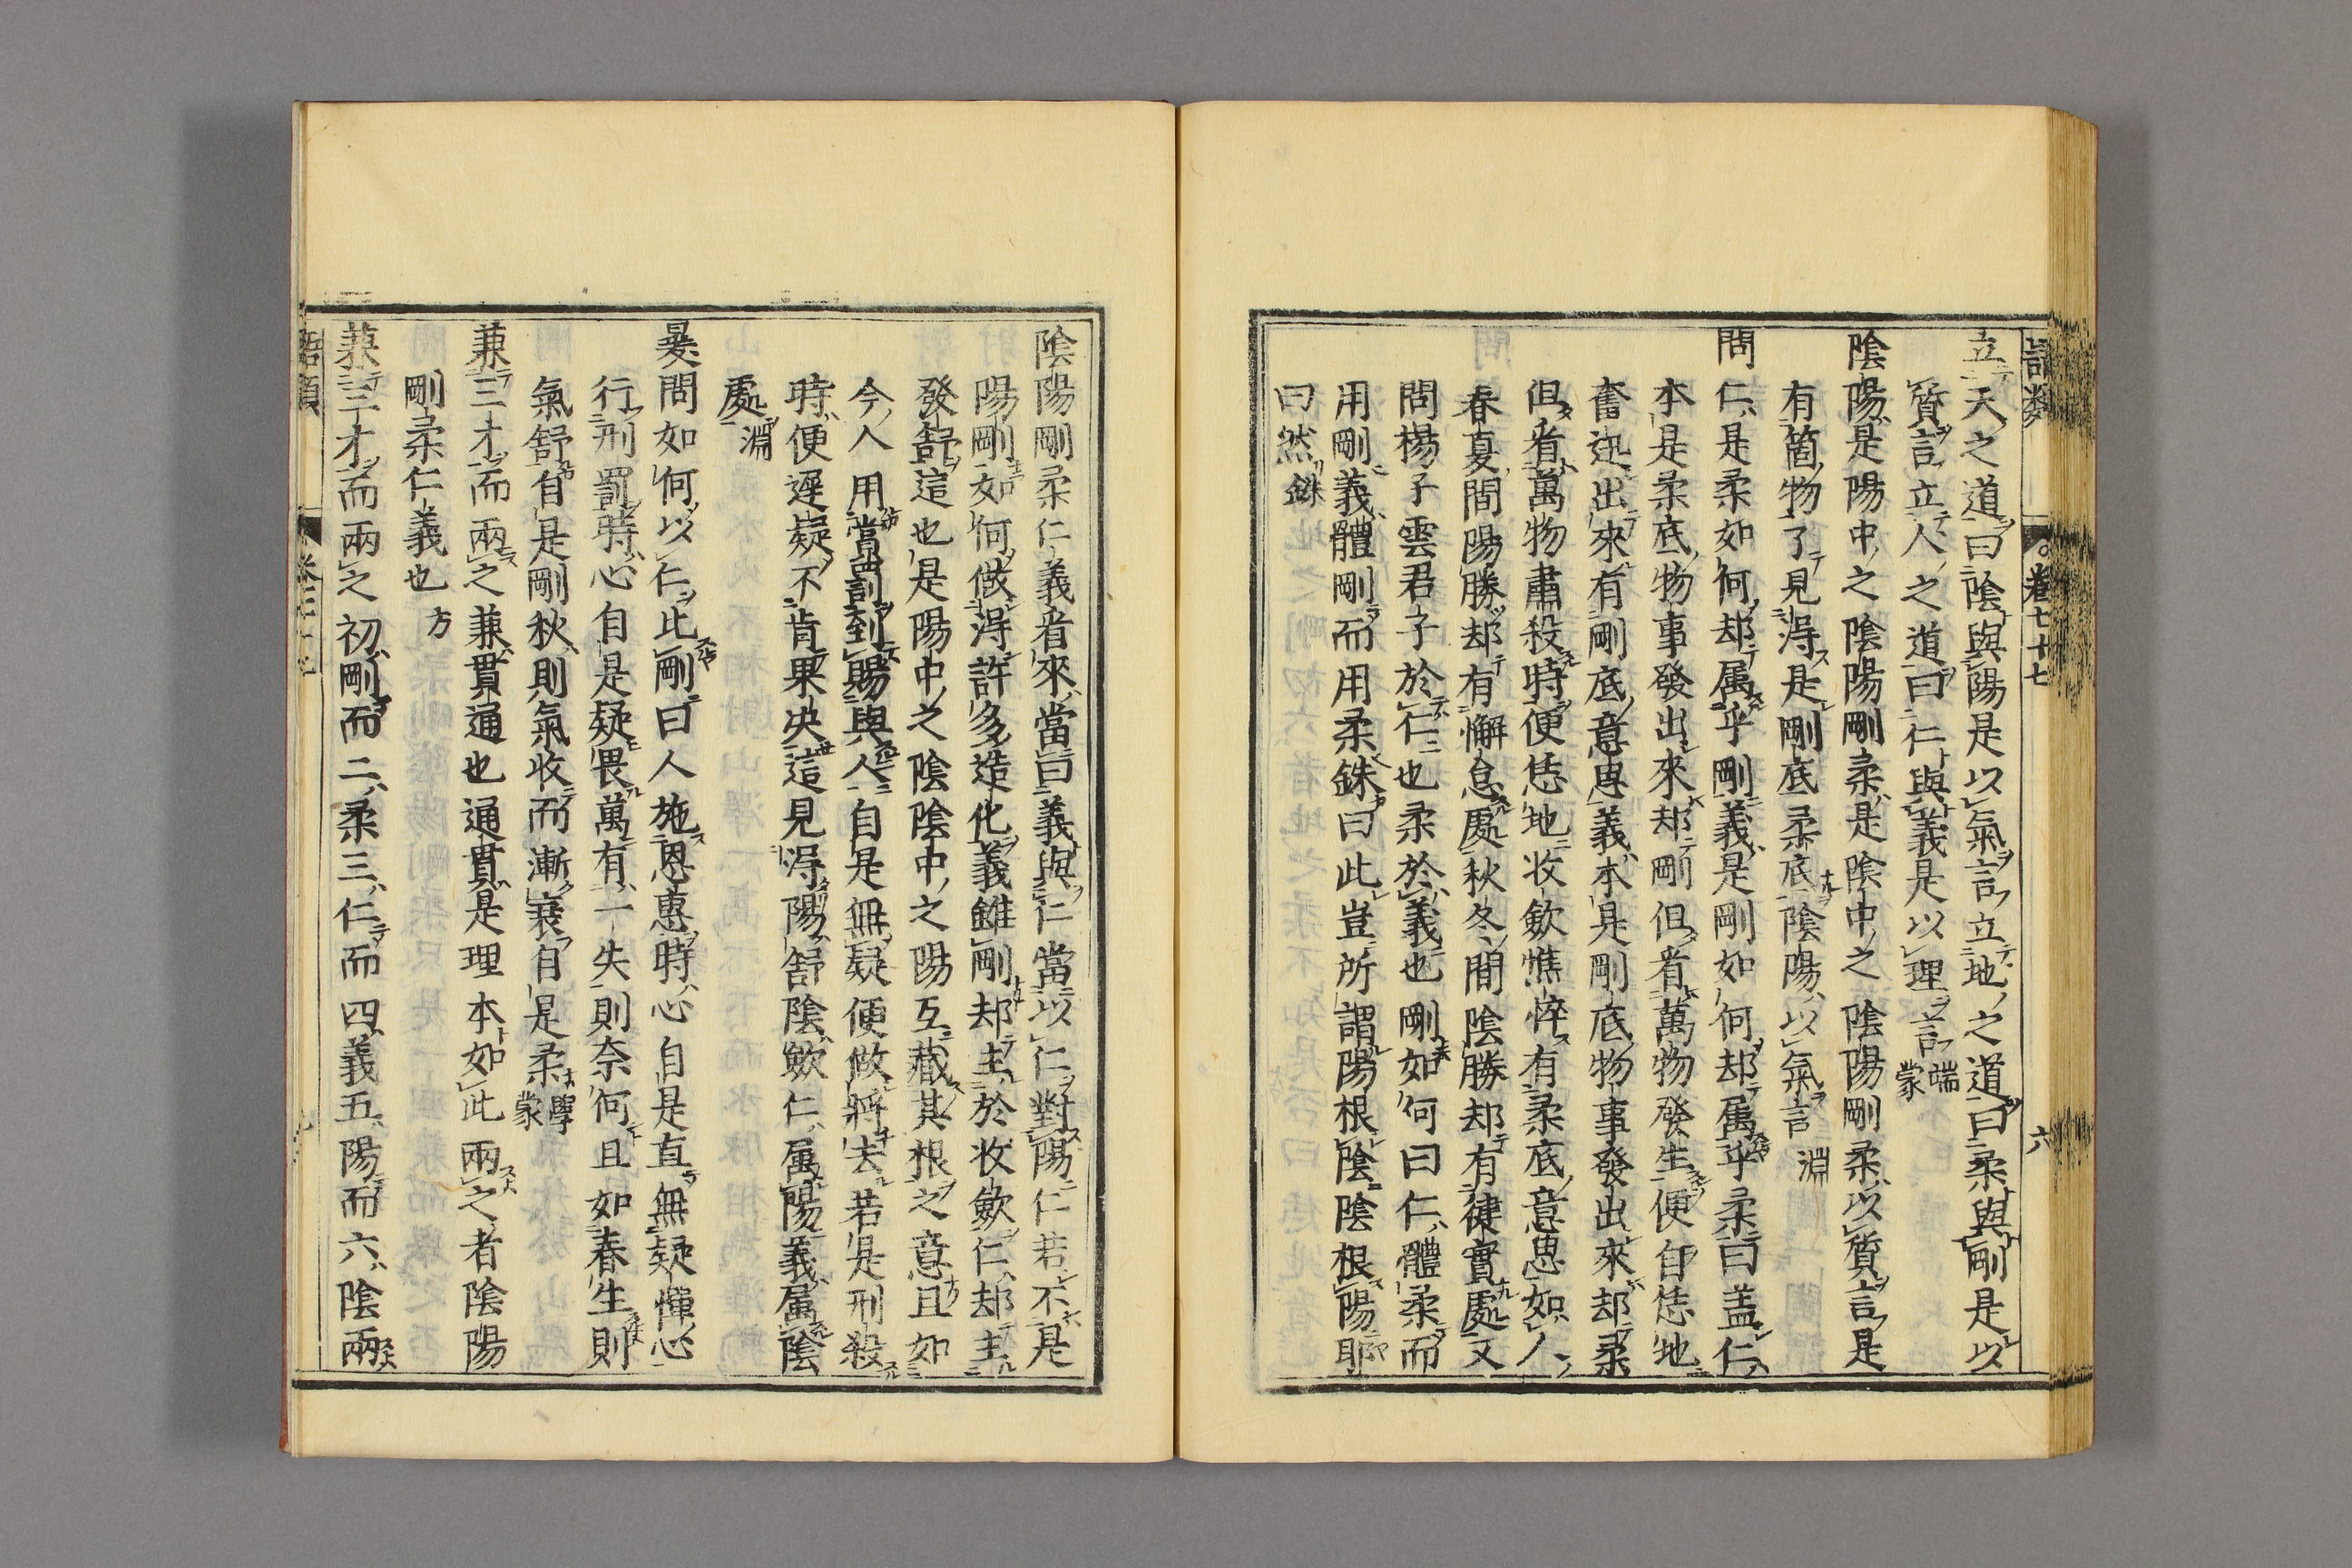 語類 卷七十七 六
立天之道曰陰與陽是以氣言立地之道曰柔與剛是以
質言立人之道曰仁與義是以理言端蒙
陰陽是陽中之陰陽剛柔是陰中之陰陽剛柔以質言是
有箇物了見得是剛底柔底陰陽以氣言淵
問仁是柔如何却属乎剛義是剛如何却属乎柔曰盖仁
本是柔底物事發出來却剛但看萬物發生便自恁地
奮迅出來有剛底意思義本是剛底物事發出來却柔
但看萬物肅殺時便恁地收斂憔悴有柔底意思如人
春夏間陽勝却有懈怠處秋冬間陰勝却有健實處又
問楊子雲君子於仁也柔於義也剛如何曰仁體柔而
用剛義體剛而用柔銖曰此豈所謂陽根陰陰根陽耶
曰然銖
陰陽剛柔仁義看來當曰義與仁當以仁對陽仁若不是
陽剛如何做得許多造化義雖剛却主於收斂仁却主
發舒這也是陽中之陰陰中之陽互藏其根之意且如
今人用賞罰到賜與人自是無疑便做將去若是刑殺
時便遲疑不肯果决這見得陽舒陰斂仁属陽義属陰
處淵
㬊問如何以仁此剛曰人施恩惠時心自是直無疑憚心
行刑罰時心自是疑畏萬有一失則奈何且如春生則
氣舒自是剛秋則氣收而漸衰自是柔學蒙
兼三才而兩之兼貫通也通貫是理本如此兩之者陰陽
剛柔仁義也方
兼三才而兩之初剛而二柔三仁而四義五陽而六陰兩
語類